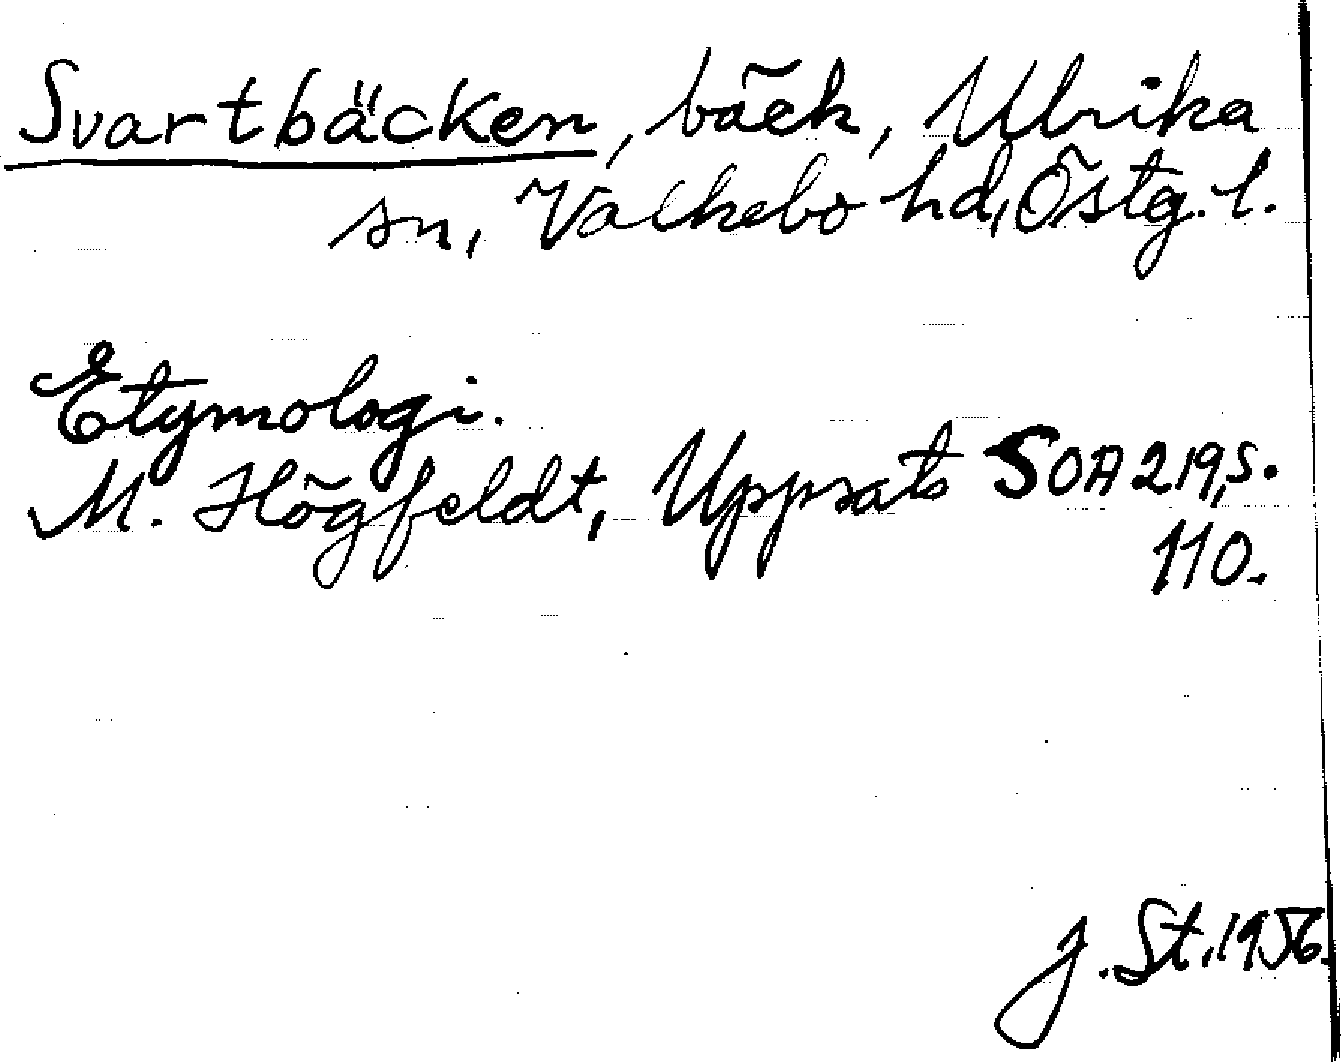 Svartbäcken, bäck, Ulrika
sn, Valkebo hd, Östg. l.
Etymologi.
M. Högfeldt, Uppsats SOA 219, s.
110.
J. St. 1956.